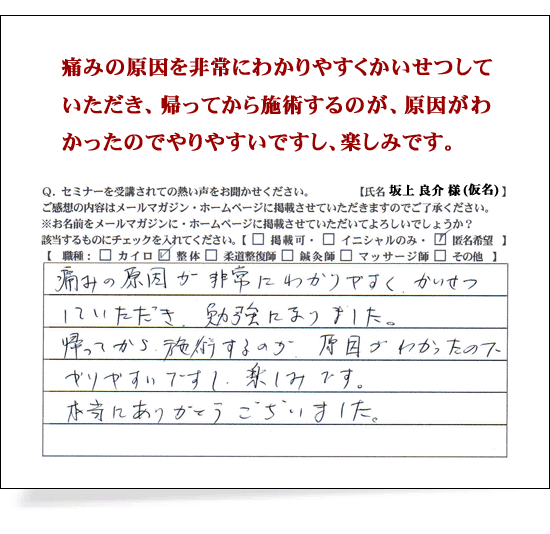 痛みの原因を非常にわかりやすくかいせつして
いただき、帰ってから施術するのが、原因がわ
かったのでやりやすいですし、楽しみです。
Q. セミナーを受講されての熱い声をお聞かせください。 【氏名 坂上 良介 様(仮名)】
ご感想の内容はメールマガジン・ホームページに掲載させていただきますのでご了承ください。
※お名前をメールマガジン・ホームページに掲載させていただいてよろしいでしょうか？
該当するものにチェックを入れてください。【 □ 掲載可・ □ イニシャルのみ・ ☑ 匿名希望 】
【 職種： □ カイロ ☑ 整体 □ 柔道整復師 □ 鍼灸師 □ マッサージ師 □ その他 】
痛みの原因が非常にわかりやすく、かいせつ
していただき、勉強になりました。
帰ってから、施術するのが、原因がわかったので
やりやすいですし、楽しみです。
本当にありがとうございました。